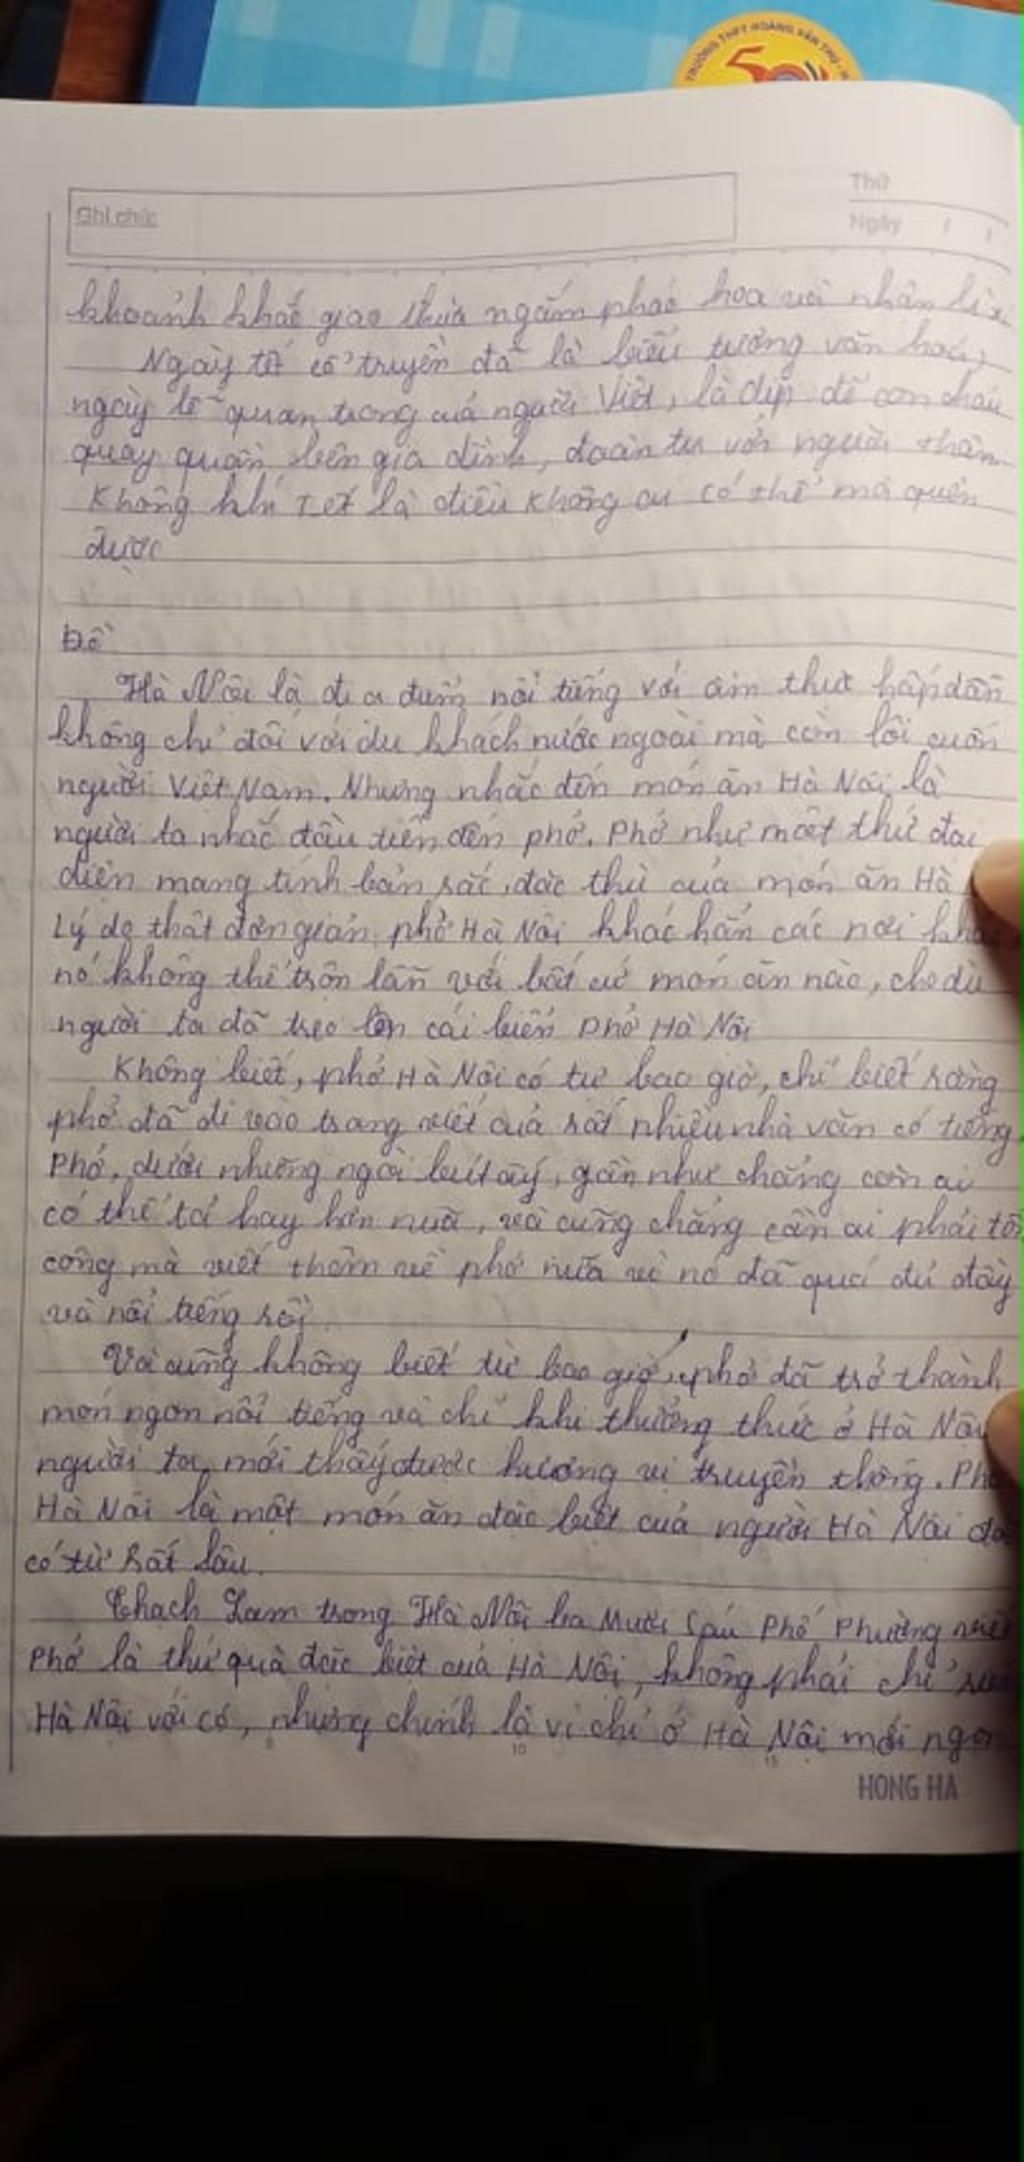 TRƯỜNG THPT HOÀNG VĂN THỤ - H
50
Thứ
Ghi chú:
Ngày / /
khoảnh khắc giao thừa ngắm pháo hoa và nhận lì x
Ngày tết cổ truyền đã là biểu tượng văn hoá,
ngày lễ quan trọng của người Việt, là dịp để con cháu
quây quần bên gia đình, đoàn tụ với người thân
Không khí Tết là điều không ai có thể mà quên
được
Đề
Hà Nội là địa điểm nổi tiếng với ẩm thực hấp dẫn
không chỉ đối với du khách nước ngoài mà còn lôi cuốn
người Việt Nam. Nhưng nhắc đến món ăn Hà Nội là
người ta nhắc đầu tiên đến phở. Phở như một thứ đại
diện mang tính bản sắc, đặc thù của món ăn Hà
Lý do thật đơn giản, phở Hà Nội khác hẳn các nơi khác
nó không thể trộn lẫn với bất cứ món ăn nào, cho dù
người ta đã treo lên cái biển Phở Hà Nội
Không biết, phở Hà Nội có tự bao giờ, chỉ biết rằng
phở đã đi vào trang viết của rất nhiều nhà văn có tiếng
Phở, dưới những ngòi bút ấy, gần như chẳng còn ai
có thể tả hay hơn nữa, và cũng chẳng cần ai phải tốn
công mà viết thêm về phở nữa vì nó đã quá đủ đầy
và nổi tiếng rồi
Và cũng không biết từ bao giờ, phở đã trở thành
món ngon nổi tiếng và chỉ khi thưởng thức ở Hà Nội
người ta mới thấy được hương vị truyền thống. Phở
Hà Nội là một món ăn đặc biệt của người Hà Nội đã
có từ rất lâu.
Thạch Lam trong Hà Nội ba Mươi Sáu Phố Phường viết
Phở là thứ quà đặc biệt của Hà Nội, không phải chỉ riê
Hà Nội với có, nhưng chính là vì chỉ ở Hà Nội mới ngon
10
15
HONG HA